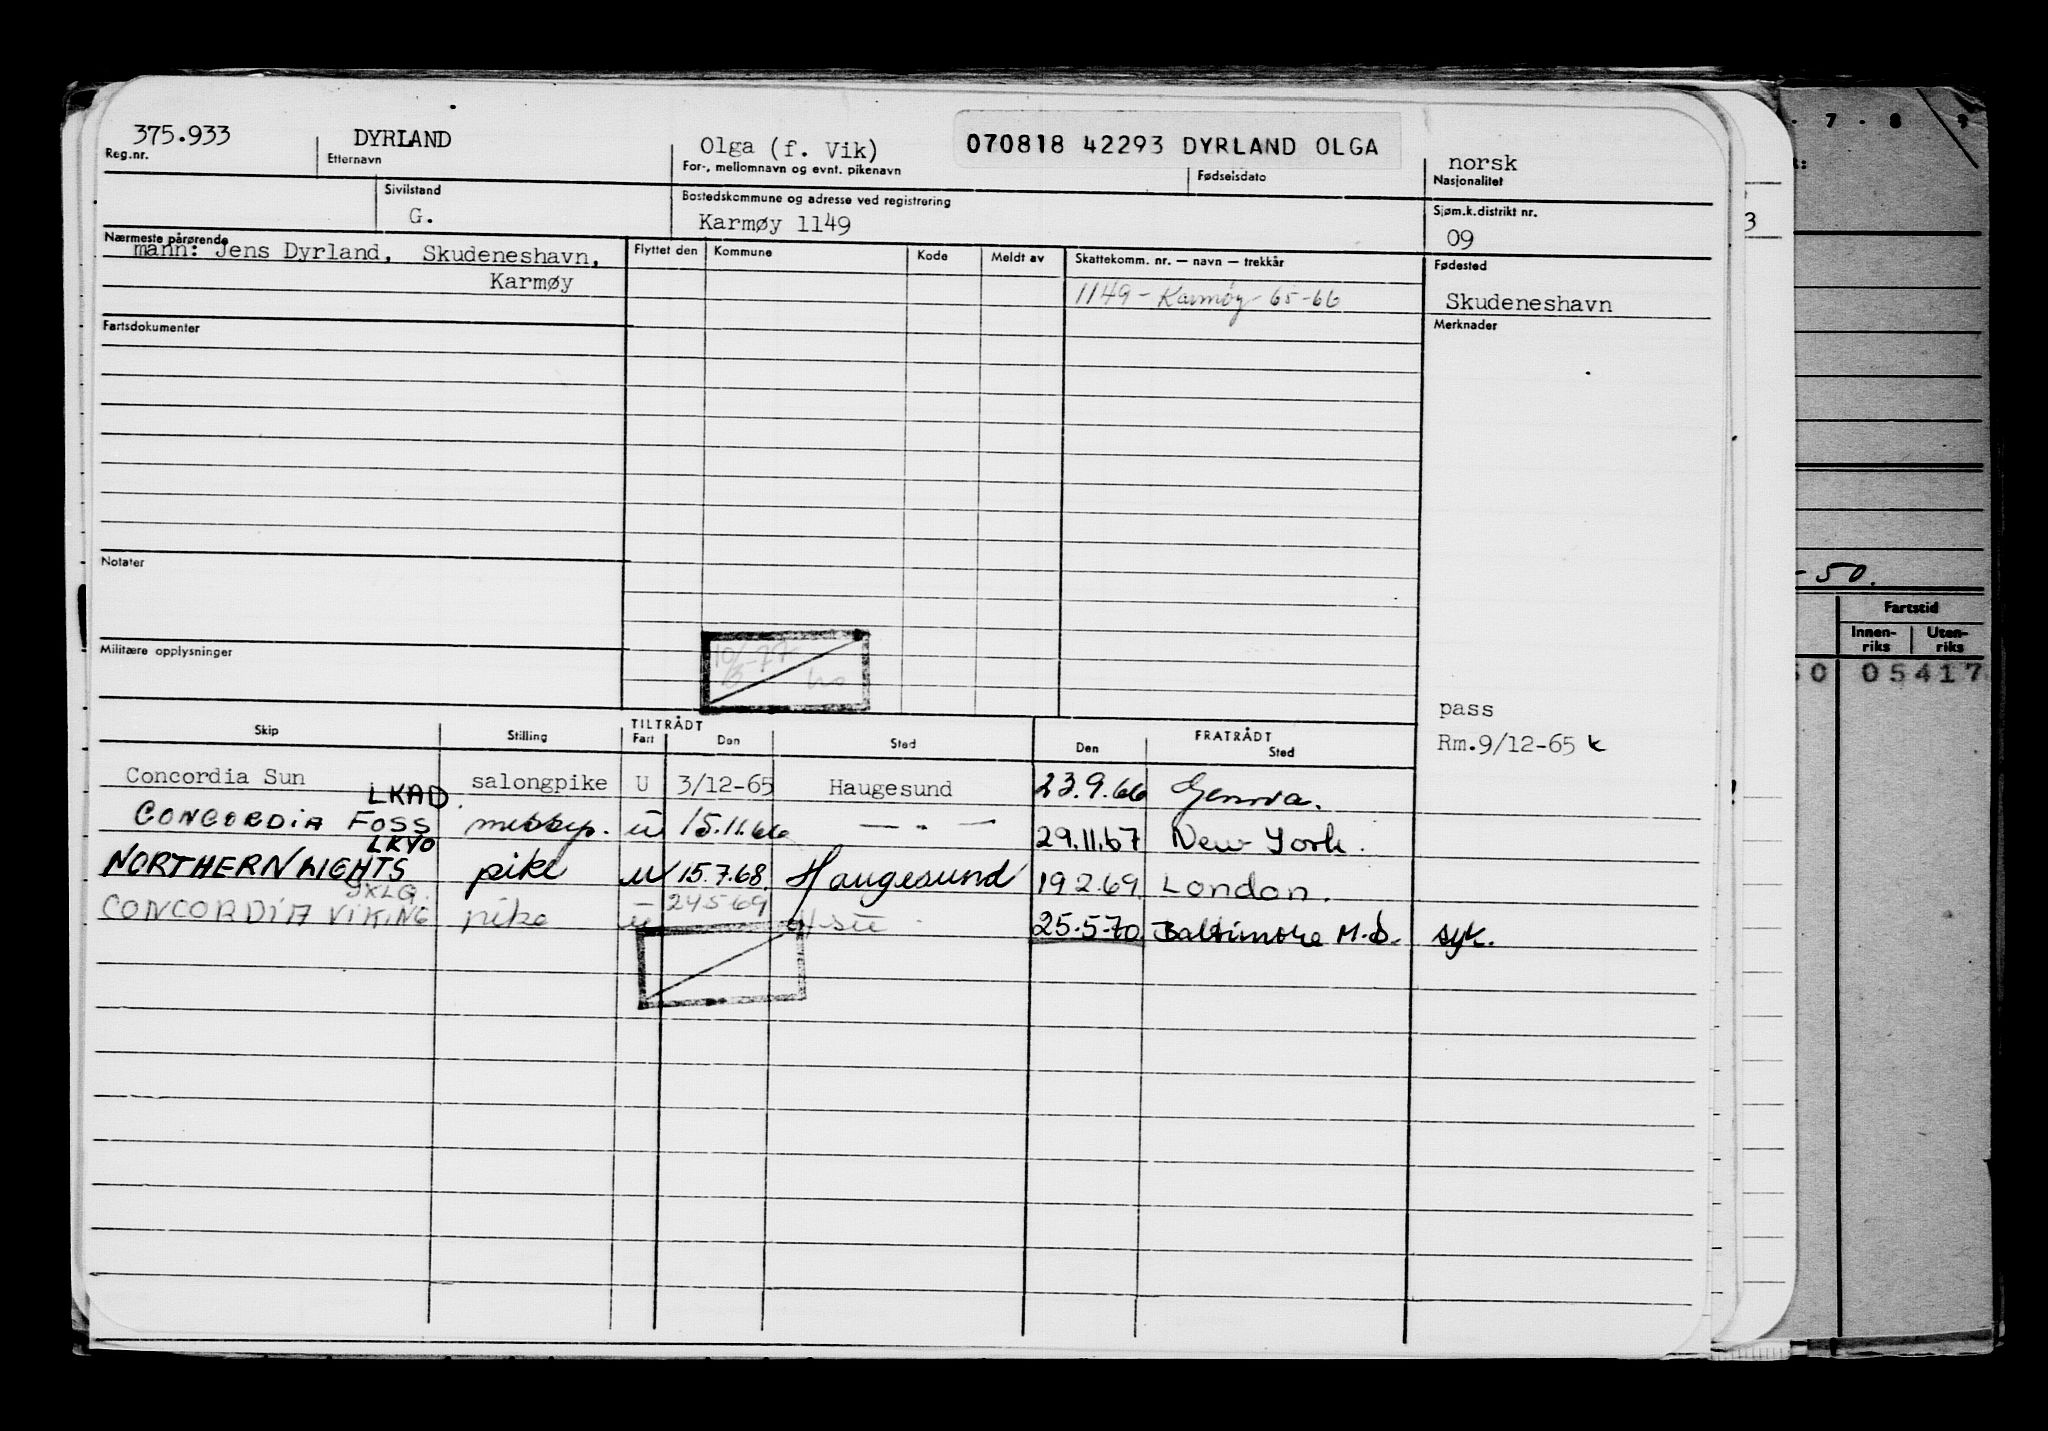 375.933 DYRLAND Olga (f. Vik) 070818 42293 DYRLAND OLGA norsk
Reg.nr. Etternavn For-, mellomnavn og evnt. pikenavn Fødselsdato Nasjonalitet
Sivilstand Bostedskommune og adresse ved registrering Sjøm.k.distrikt nr.
G. Karmøy 1149 09
Nærmeste pårørende Flyttet den Kommune Kode Meldt av Skattekomm. nr. — navn — trekkår Fødested
mann: Jens Dyrland, Skudeneshavn,
Karmøy 1149 - Karmøy - 65-66 Skudeneshavn
Fartsdokumenter Merknader
Notater
Militære opplysninger
pass
Rm.9/12-65
TILTRÅDT FRATRÅDT
Skip Stilling Fart Den Sted Den Sted
Concordia Sun salongpike U 3/12-65 Haugesund 23.9.66 Genova.
LKAD.
CONCORDIA FOSS messep. u 15.11.66 — " — 29.11.67 New York.
LKYO
NORTHERN LIGHTS pike u 15.7.68. Haugesund 19.2.69. London.
JXLG.
CONCORDIA VIKING pike u 24.5.69 25.5.70 Baltimore M.D. syk.
- 7 - 8
3
- 50.
Fartstid
Innen-
riks Uten-
riks
50 05417